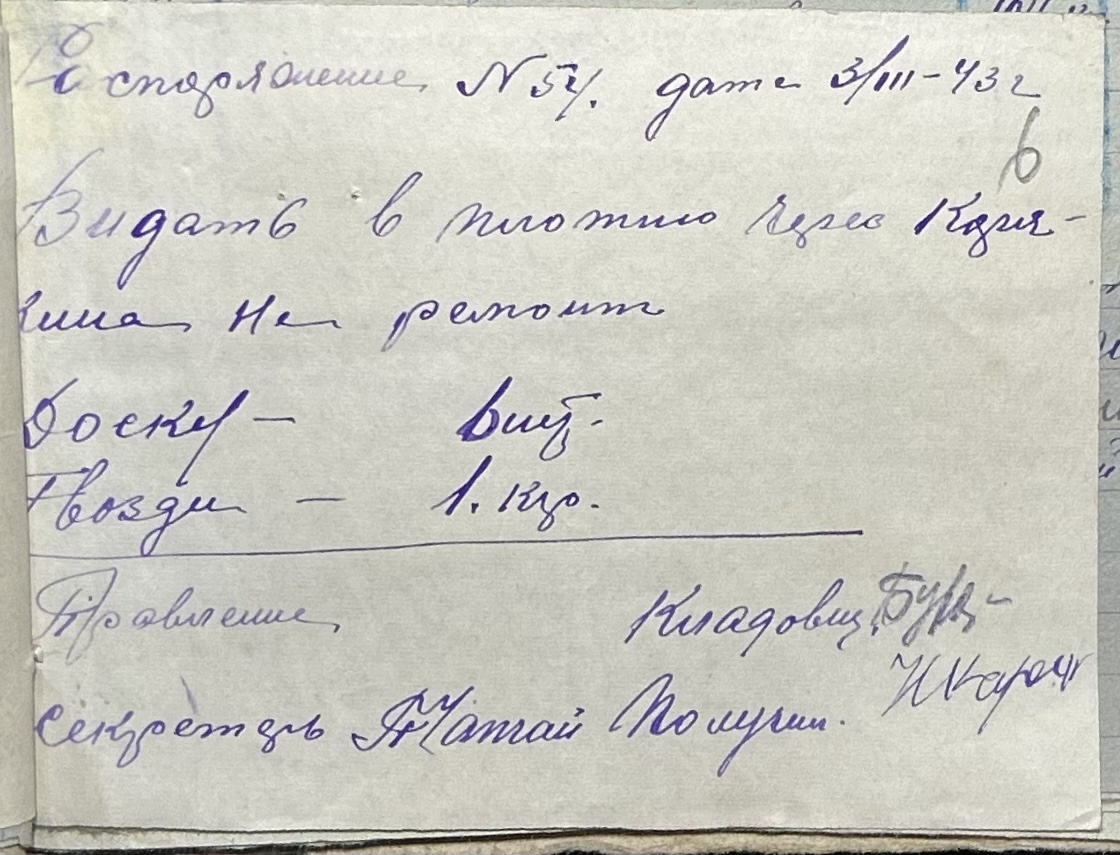 Распоряжение N 54. дата 3/III-43 г
6
Видать в плотню через Каря-
кина на ремонт
Доску – 6 шт.
Гвозди – 1. кгр.
Правление Кладовщ.
Секретарь Получил.